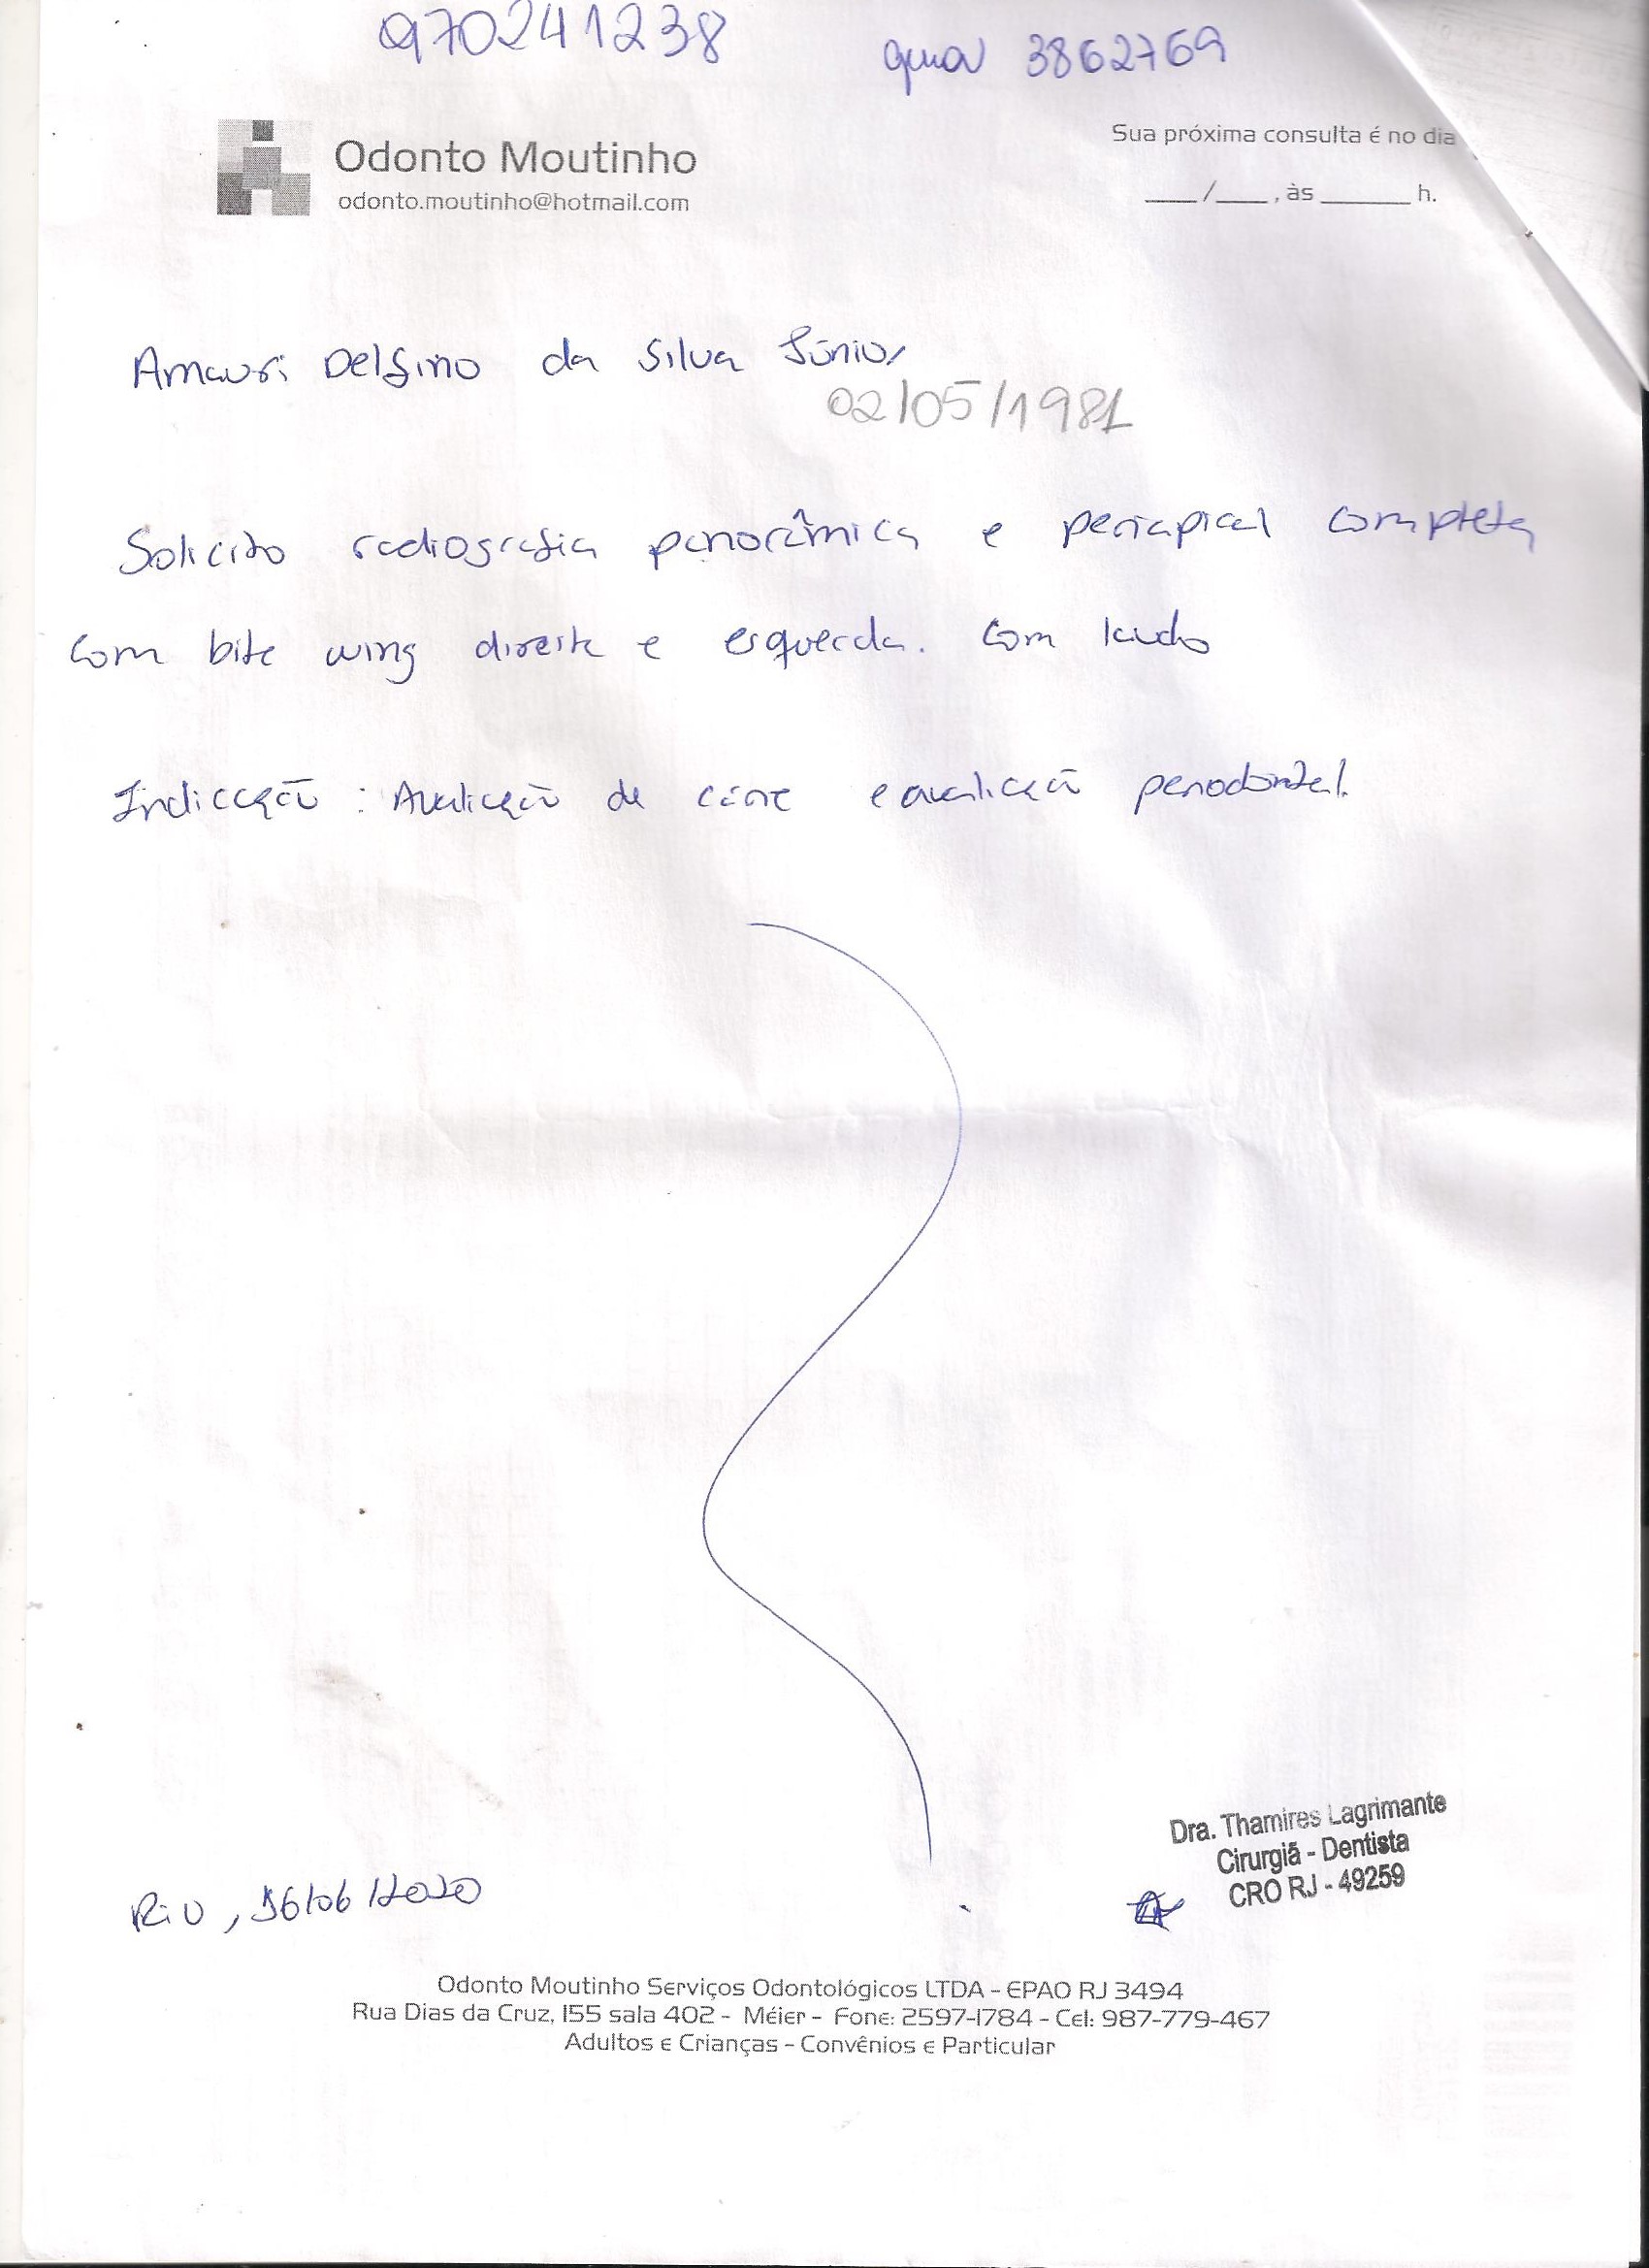 970241238
guia 3862769
Odonto Moutinho
odonto.moutinho@hotmail.com
Sua próxima consulta é no dia
___/___, às _____ h.
Amauri Delfino da Silva Júnior
02/05/1981
Solicito radiografia panorâmica e periapical completa
com bite wing direita e esquerda. Com laudo
Indicação: Avaliação de cárie e avaliação periodontal.
Dra. Thamires Lagrimante
Cirurgiã - Dentista
CRO RJ - 49259
Rio, /06/2020
Odonto Moutinho Serviços Odontológicos LTDA - EPAO RJ 3494
Rua Dias da Cruz, 155 sala 402 - Méier - Fone: 2597-1784 - Cel: 987-779-467
Adultos e Crianças - Convênios e Particular